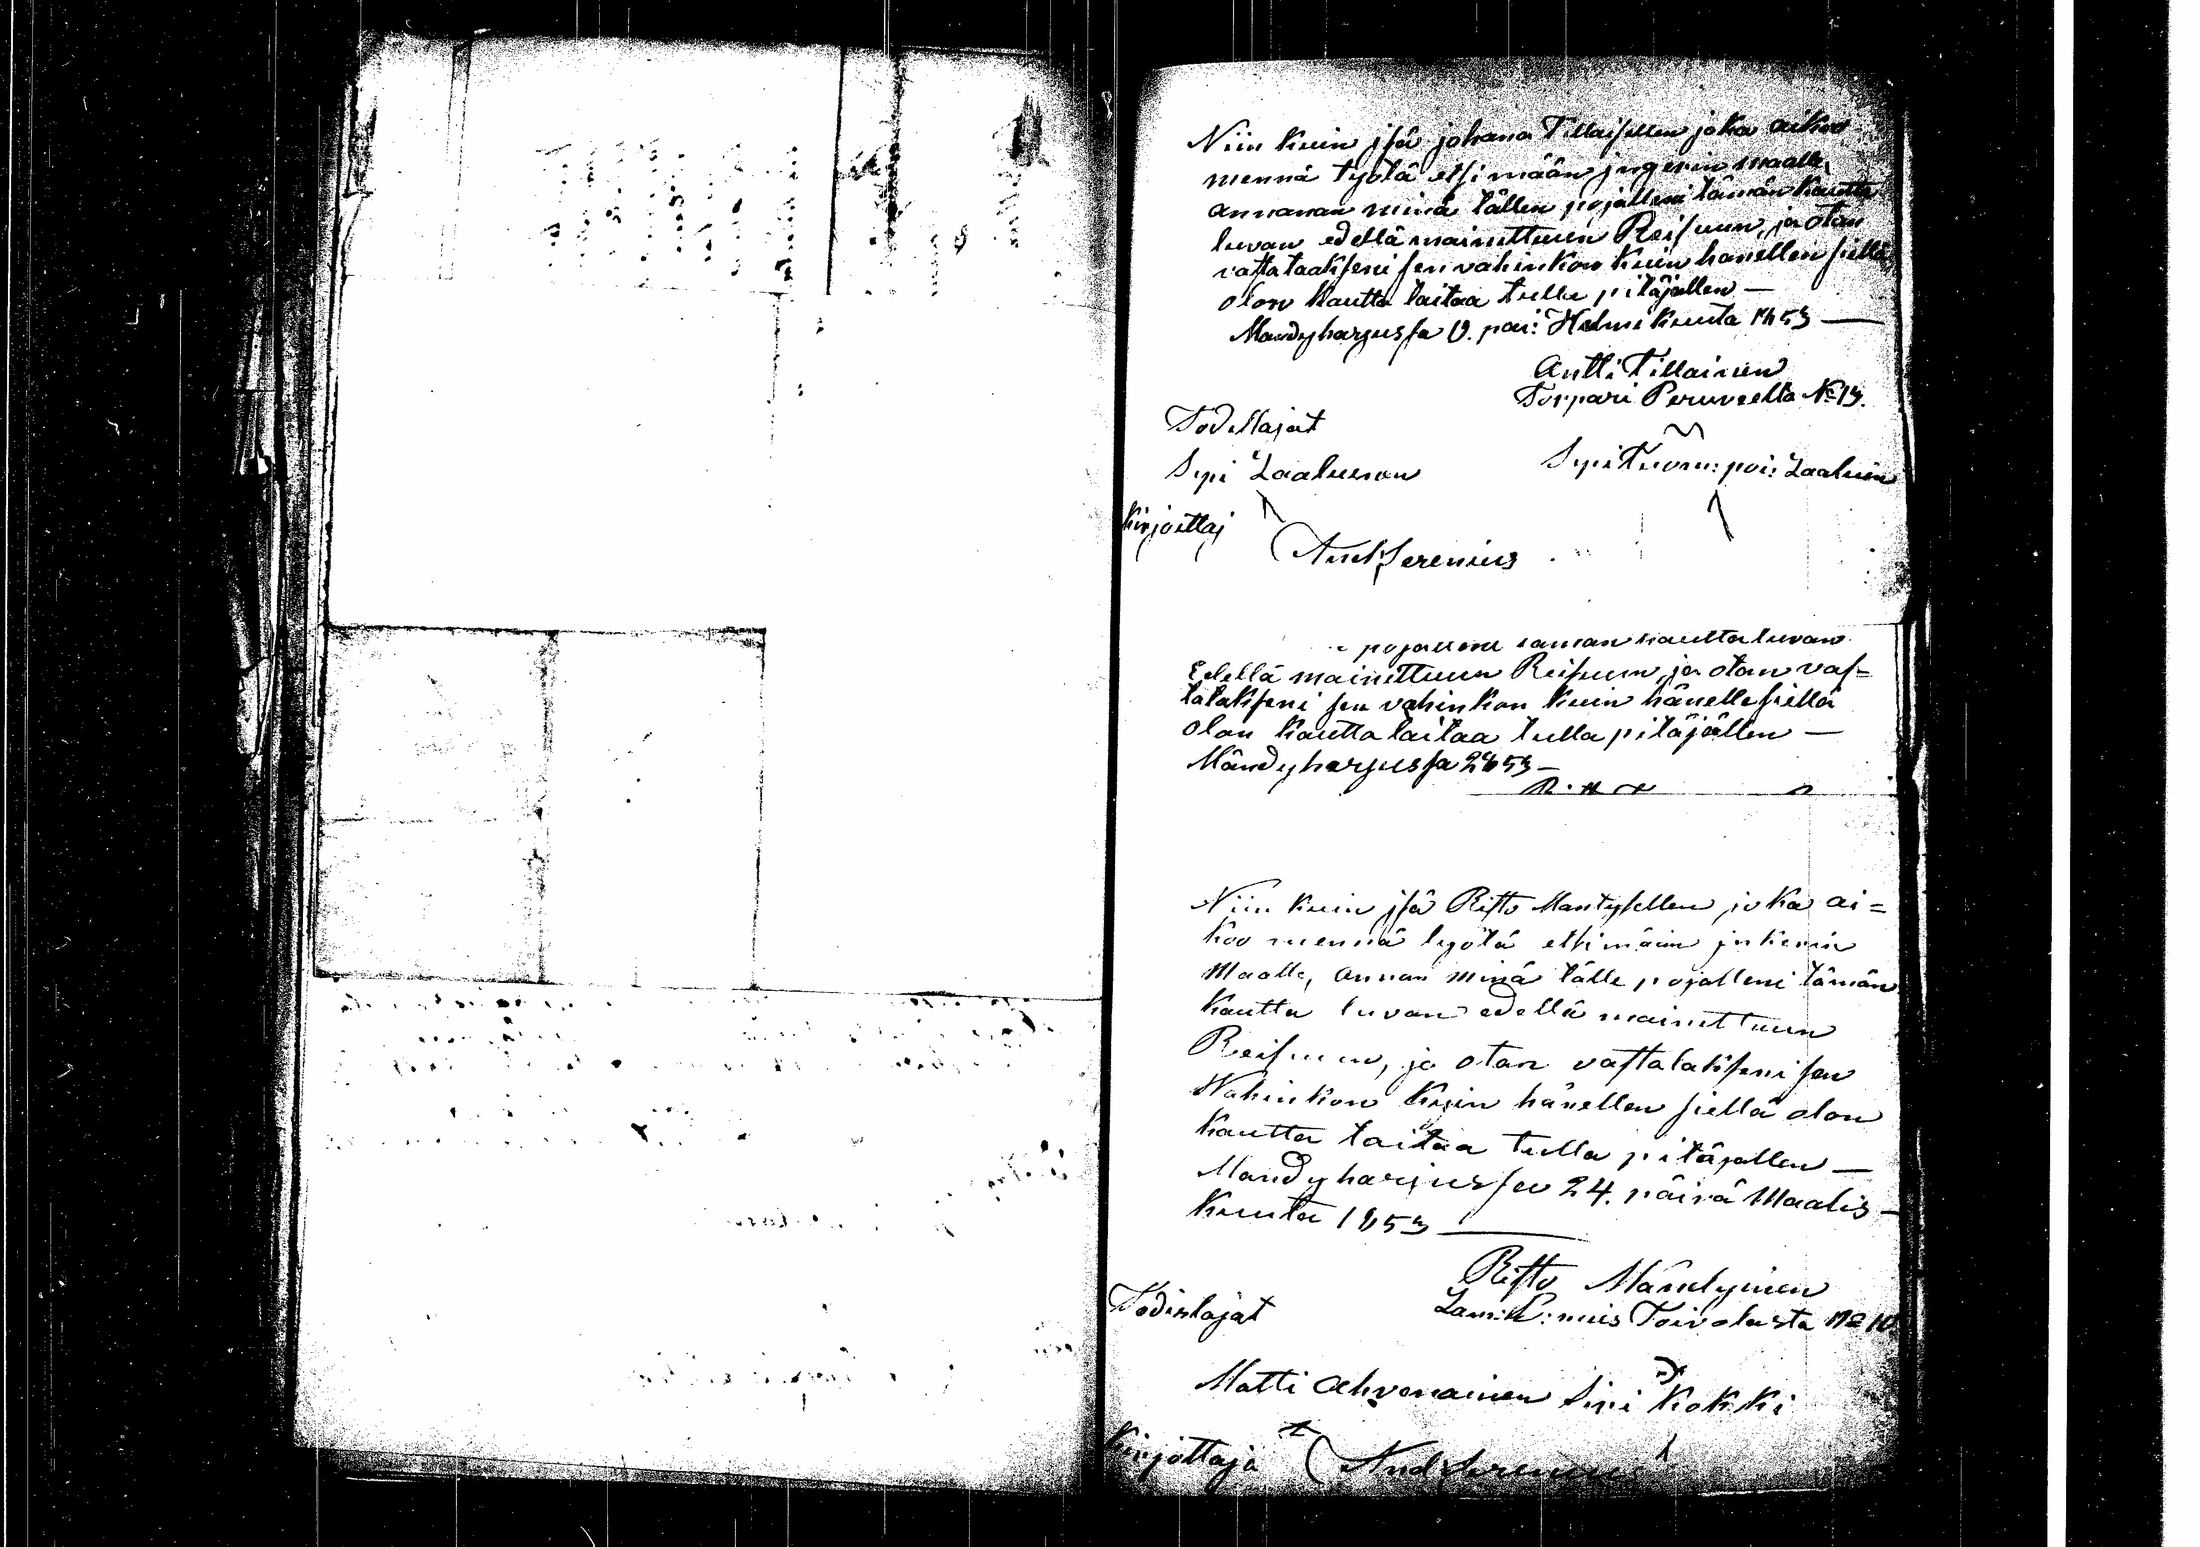 Niin kuin jsä johana Tillaisellen joka aikoo
mennä työtä etsimään jngerin maalle,
annanan minä tällen pojalleni tämän kautta
luvan edellä mainittuun Reisuun, ja otan
vastataakseni sen vahinkon kuin hanellen siellä
olon kautta taitaa tulla pitäjällen —
Mandyharjussa 9. päi: Helmi kuuta 1853 —
Antti Tillainen
Torpari Peruveeltä No 13.
Todistajat
Sipi Laaluinon
Sipi Tuom: poi: Laaluin
kirjoittaj
And Serenius
pojalleni taman kautta luvan
Edellä mainittuun Reisuun, ja otan vas=
tatakseni sen vahinkon kuin hänelle siellä
olon kautta taitaa tulla pitäjällen —
Mändyharjussa 53 —
Niin kuin jsä Risto Mantysellen, joka ai=
koo mennä työtä etsimään jnkerin
Maalle, annan minä tälle pojalleni tämän
kautta luvan edellä mainittuun
Reisuun, ja otan vastatakseni sen
Wahinkon kuin hänellen siellä olon
kautta taitaa tulla pitäjallen —
Mandyharjussa 24. päivä Maalis-
kuuta 1853
Risto Mändyinen
Lam: mies Toivolasta No 10.
Todistajat
Matti Ahvenainen Sipi Kokki
Kirjottaja And Serenius